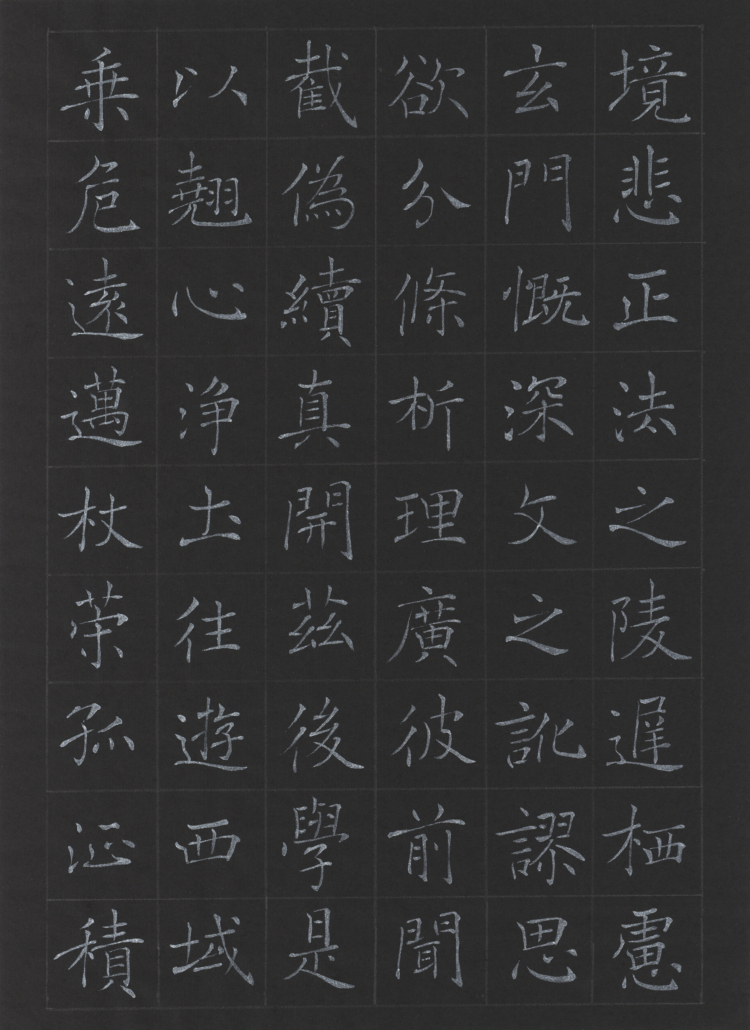 境悲正法之陵遅栖慮
玄門慨深文之訛謬思
欲分條析理廣彼前聞
截偽續真開茲後學是
以翹心净土往遊西域
乗危遠邁杖策孤征積